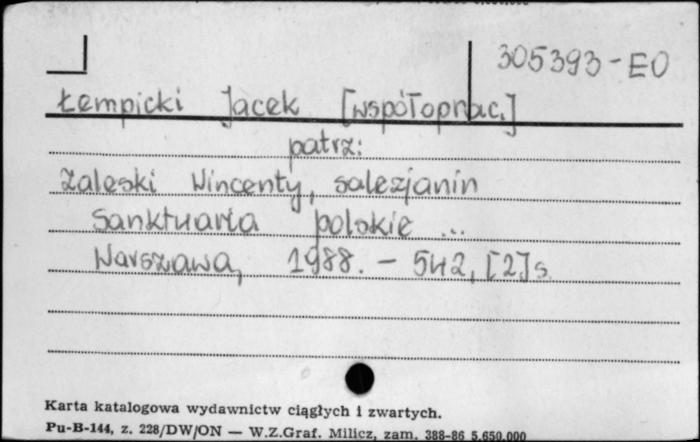 305393-EO
Łempicki Jacek [współoprac.]
patrz:
Zaleski Wincenty, salezjanin
Sanktuaria polskie ...
Warszawa, 1988. - 542, [2] s.
Karta katalogowa wydawnictw ciągłych i zwartych.
Pu-B-144, z. 228/DW/ON — W.Z.Graf. Milicz, zam. 388-86 5.650.000